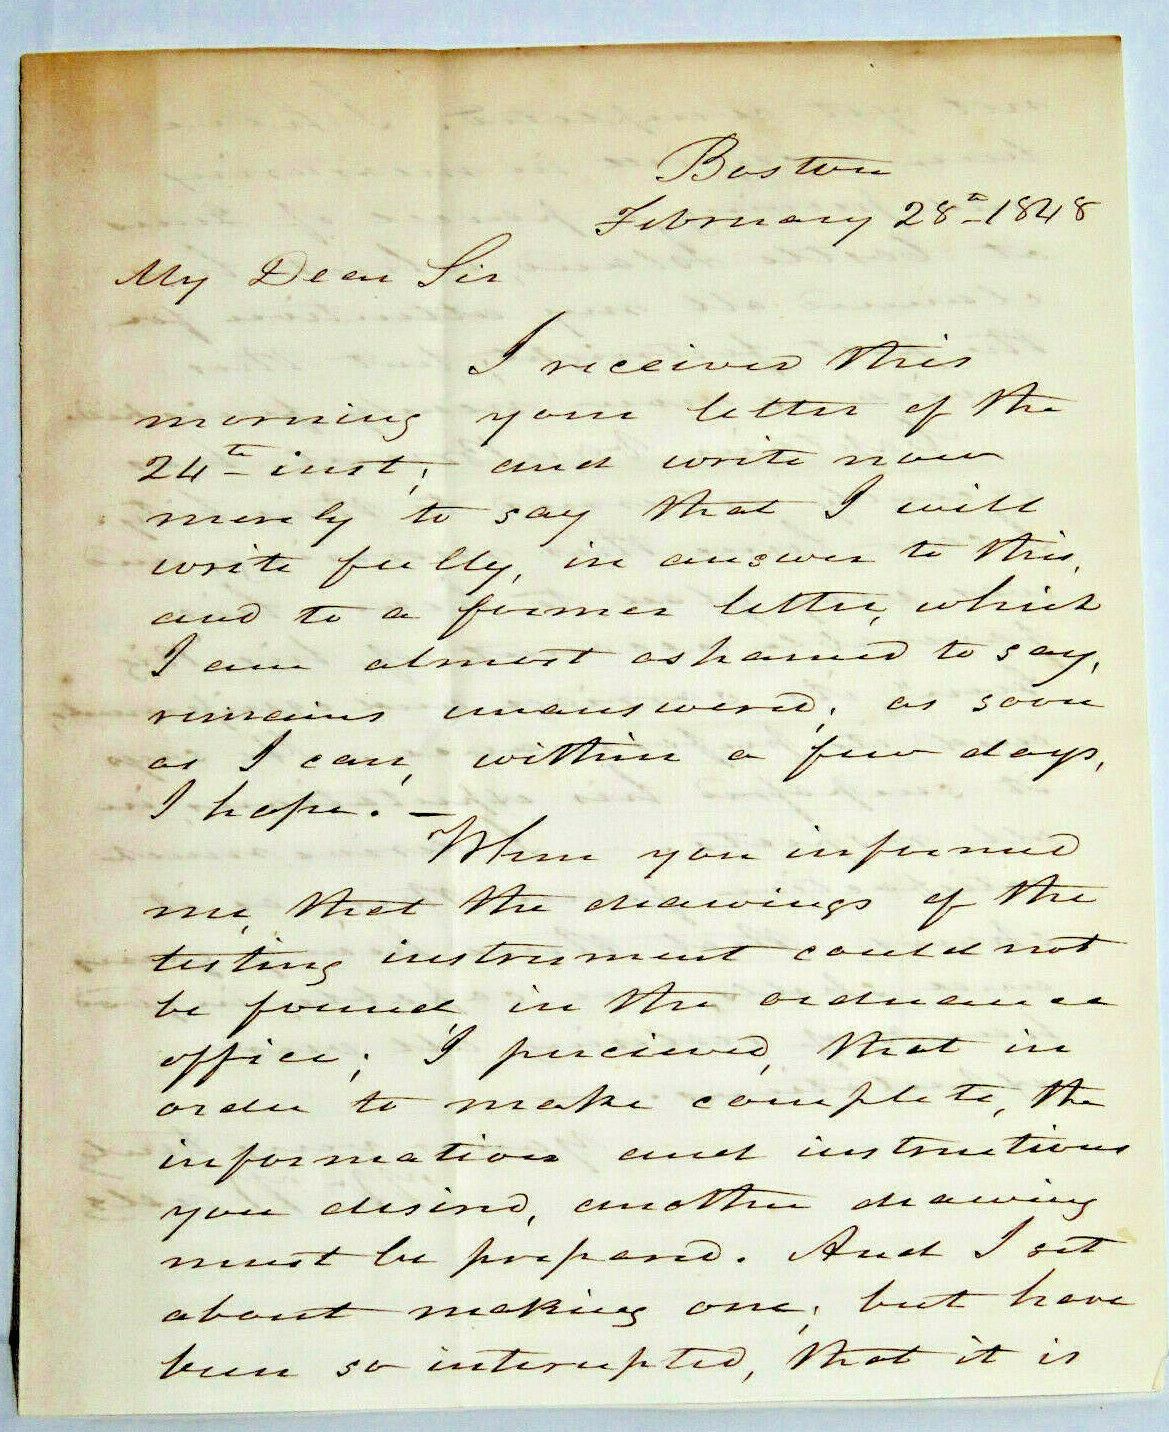 Boston
February 28th 1848
My Dear Sir
I received this
morning your letter of the
24th inst; and write now
merely to say that I will
write fully, in answer to this,
and to a former letter, which
I am almost ashamed to say,
remains unanswered; as soon
as I can, within a few days,
I hope. —
When you informed
me, that the drawings of the
testing instrument could not
be found in the ordnance
office; I percieved, that in
order to make complete, the
information and instructions
you desired, another drawing
must be prepared. And I set
about making one; but have
been so interupted, that it is